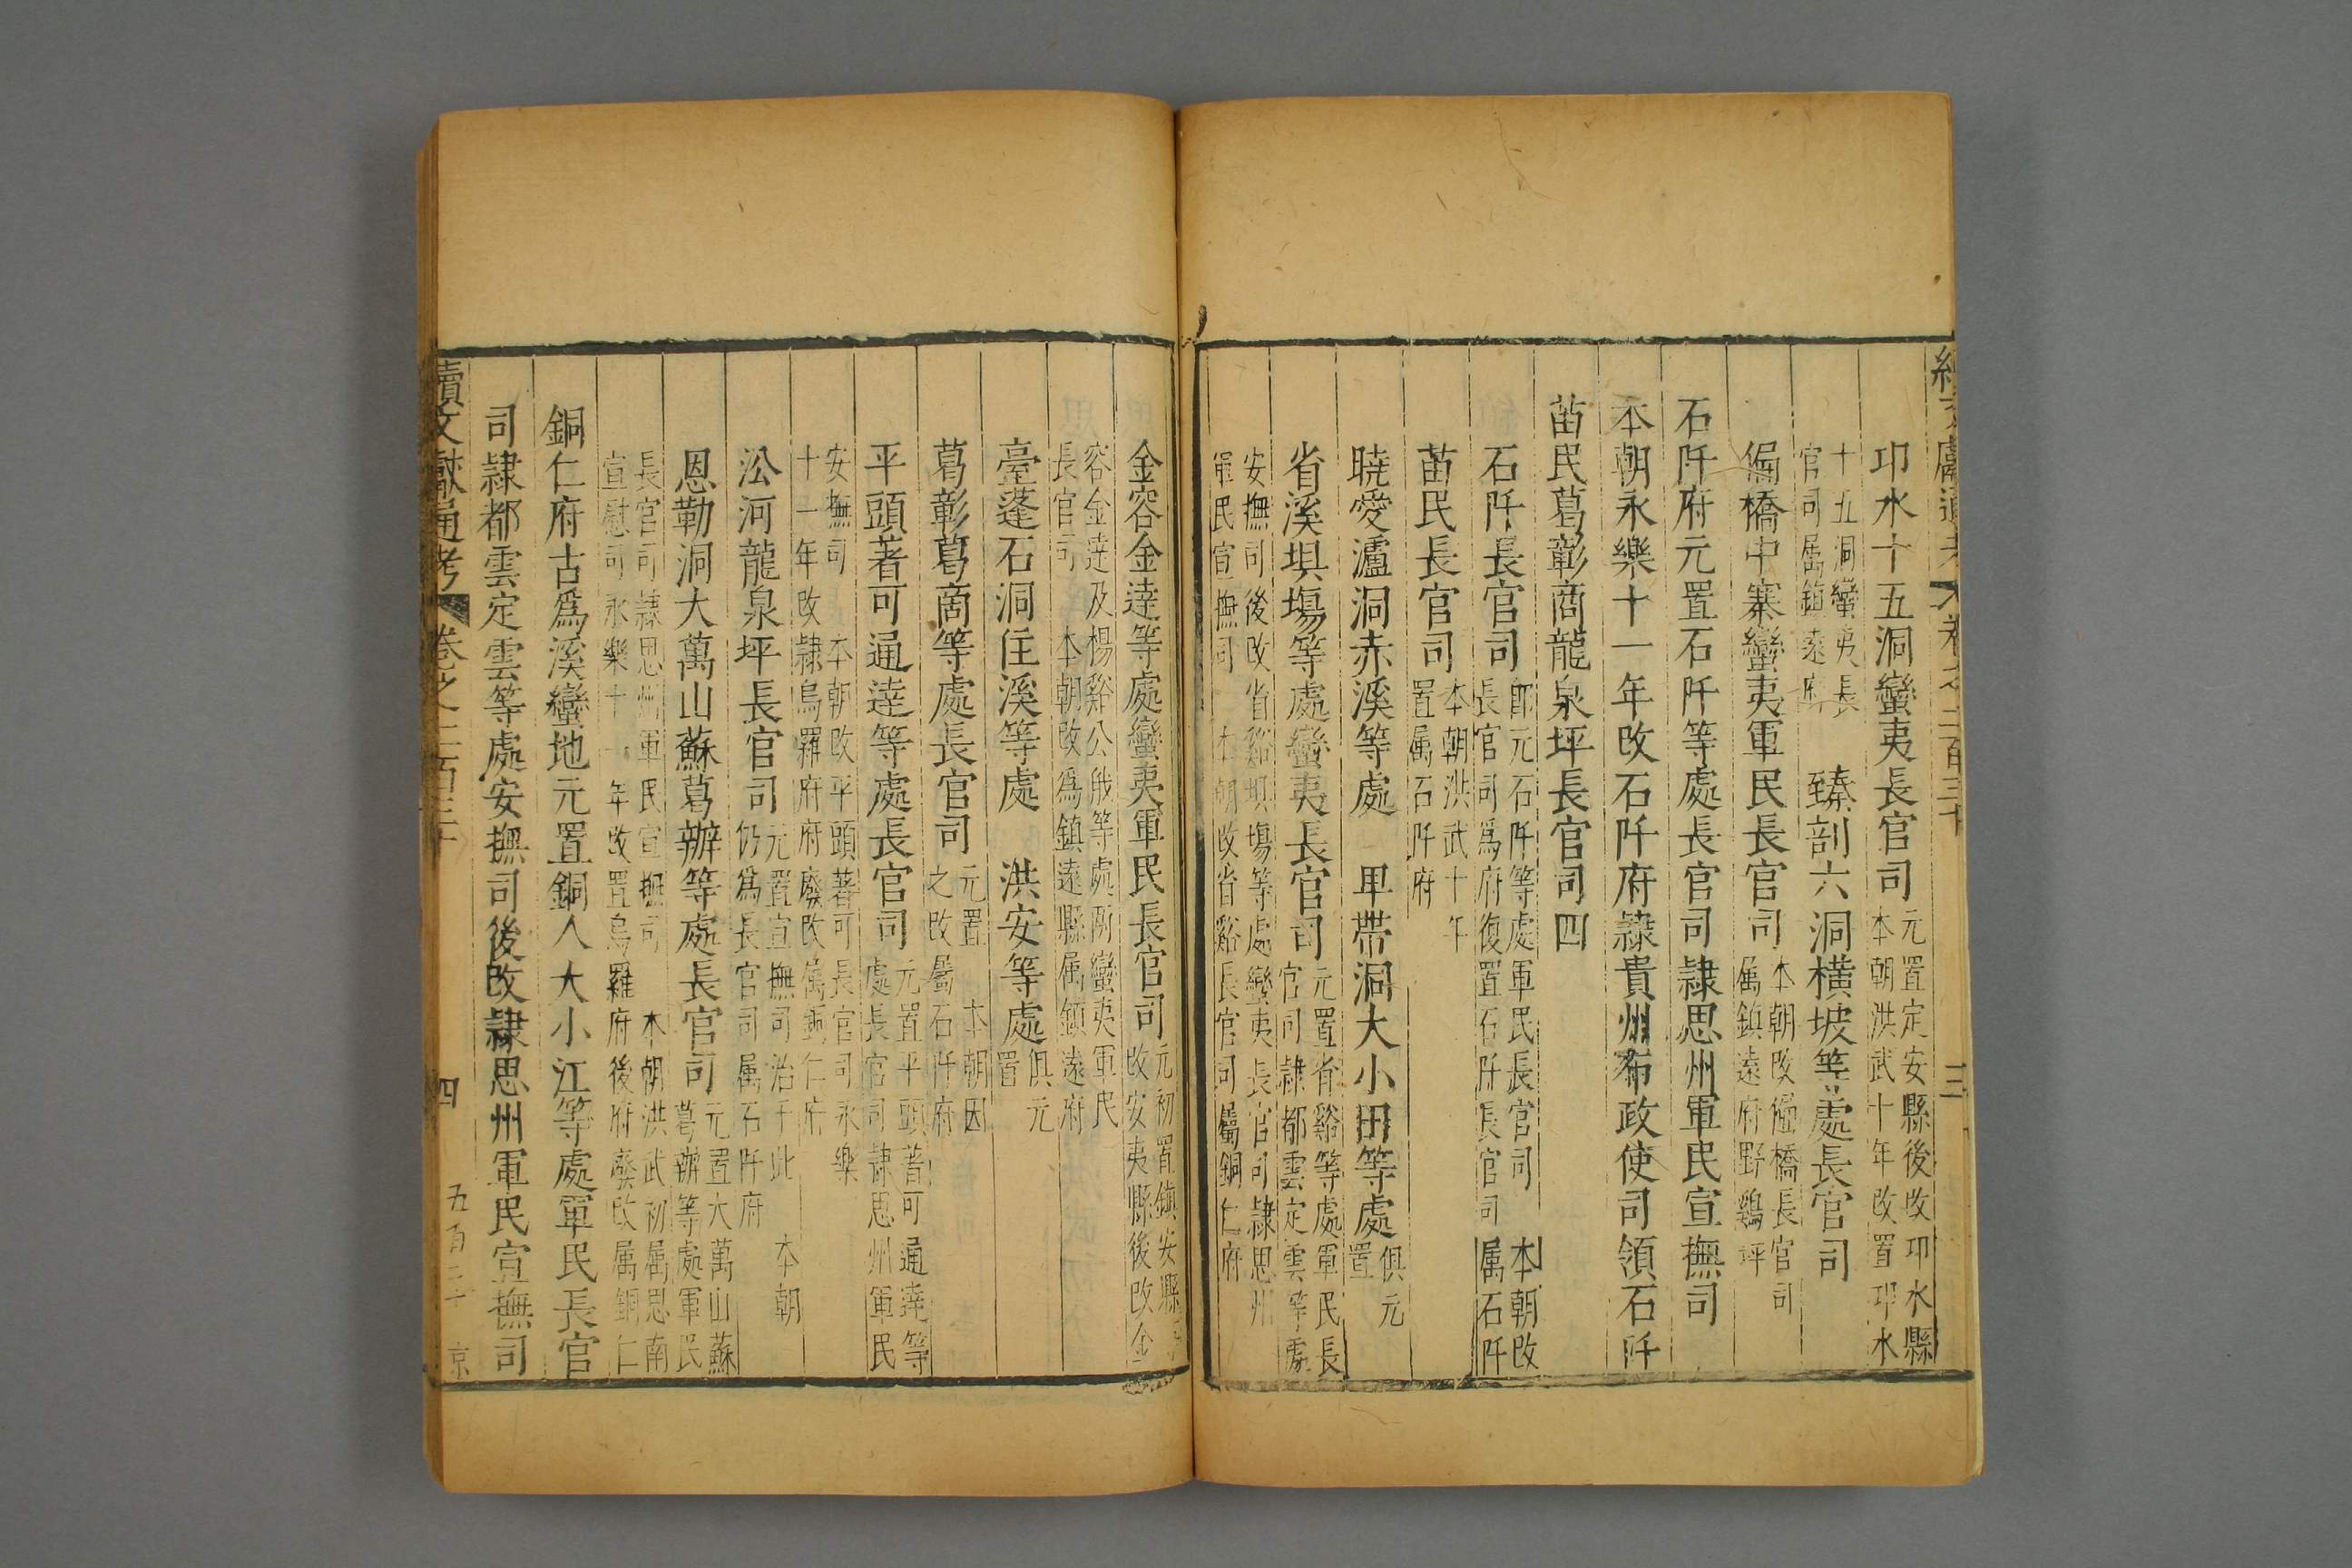 卭水十五洞蠻夷長官司 元置定安縣後改卭水縣 本朝洪武十年改置卭水
十五洞蠻夷長官司属鎮遠府 臻剖六洞橫坡等處長官司
偏橋中寨蠻夷軍民長官司 本朝改偏橋長官司属鎮遠府野鷄坪
石阡府元置石阡等處長官司隷思州軍民宣撫司
本朝永樂十一年改石阡府隷貴州布政使司領石阡
苗民葛彰商龍泉坪長官司四
石阡長官司 即元石阡等處軍民長官司 本朝改長官司爲府復置石阡長官司属石阡
苗民長官司 本朝洪武十年置属石阡府
曉愛瀘洞赤溪等處 卑帶洞大小田等處 俱元置
省溪埧塲等處蠻夷長官司 元置省谿等處軍民長官司隷都雲定雲等處
安撫司後改省谿埧塲等處蠻夷長官司隷思州軍民宣撫司 本朝改省谿長官司屬銅仁府
金容金達等處蠻夷軍民長官司 元初置鎮安縣 改安夷縣後改金
容金達及楊谿公俄等處蠻夷軍民長官司 本朝改爲鎮遠縣属鎮遠府
臺蓬石洞住溪等處 洪安等處 俱元置
葛彰葛商等處長官司 元置 本朝因之改屬石阡府
平頭著可通達等處長官司 元置平頭著可通達等處長官司隷思州軍民
安撫司 本朝改平頭著可長官司永樂十一年改隷烏羅府府廢改属銅仁府
㳂河龍泉坪長官司 元置宣撫司治于此 本朝仍爲長官司属石阡府
恩勒洞大萬山蘇葛辦等處長官司 元置大萬山蘇葛辦等處軍民
長官司隷思州軍民宣撫司 本朝洪武初属思南宣慰司永樂十一年改置烏羅府後府廢改属銅仁
銅仁府古爲溪蠻地元置銅人大小江等處軍民長官
司隷都雲定雲等處安撫司後改隷思州軍民宣撫司
續文獻通考 卷之二百三十 四